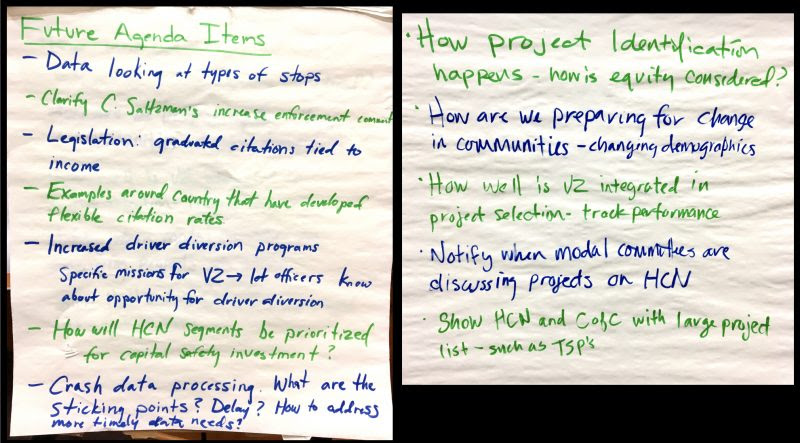 Future Agenda Items
- Data looking at types of stops
- Clarify C. Saltzman's increase enforcement comment
- Legislation: graduated citations tied to
income
- Examples around country that have developed
flexible citation rates
- Increased driver diversion programs
Specific missions for VZ → let officers know
about opportunity for driver diversion
- How will HCN segments be prioritized
for capital safety investment?
- Crash data processing. What are the
sticking points? Delay? How to address
more timely data needs?
· How project Identification
happens - how is equity considered?
· How are we preparing for change
in communities - changing demographics
· How well is VZ integrated in
project selection - track performance
· Notify when modal committees are
discussing projects on HCN
· Show HCN and CofC with large project
list - such as TSP's